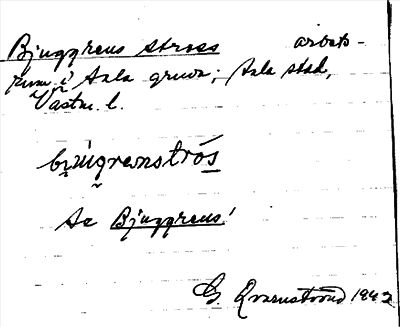 Bjuggrens stross arbets-
rum i Sala gruva; Sala stad,
Västm. l.
bju̇grænstrós
Se Bjuggrens!
G. Qvarnström 1943